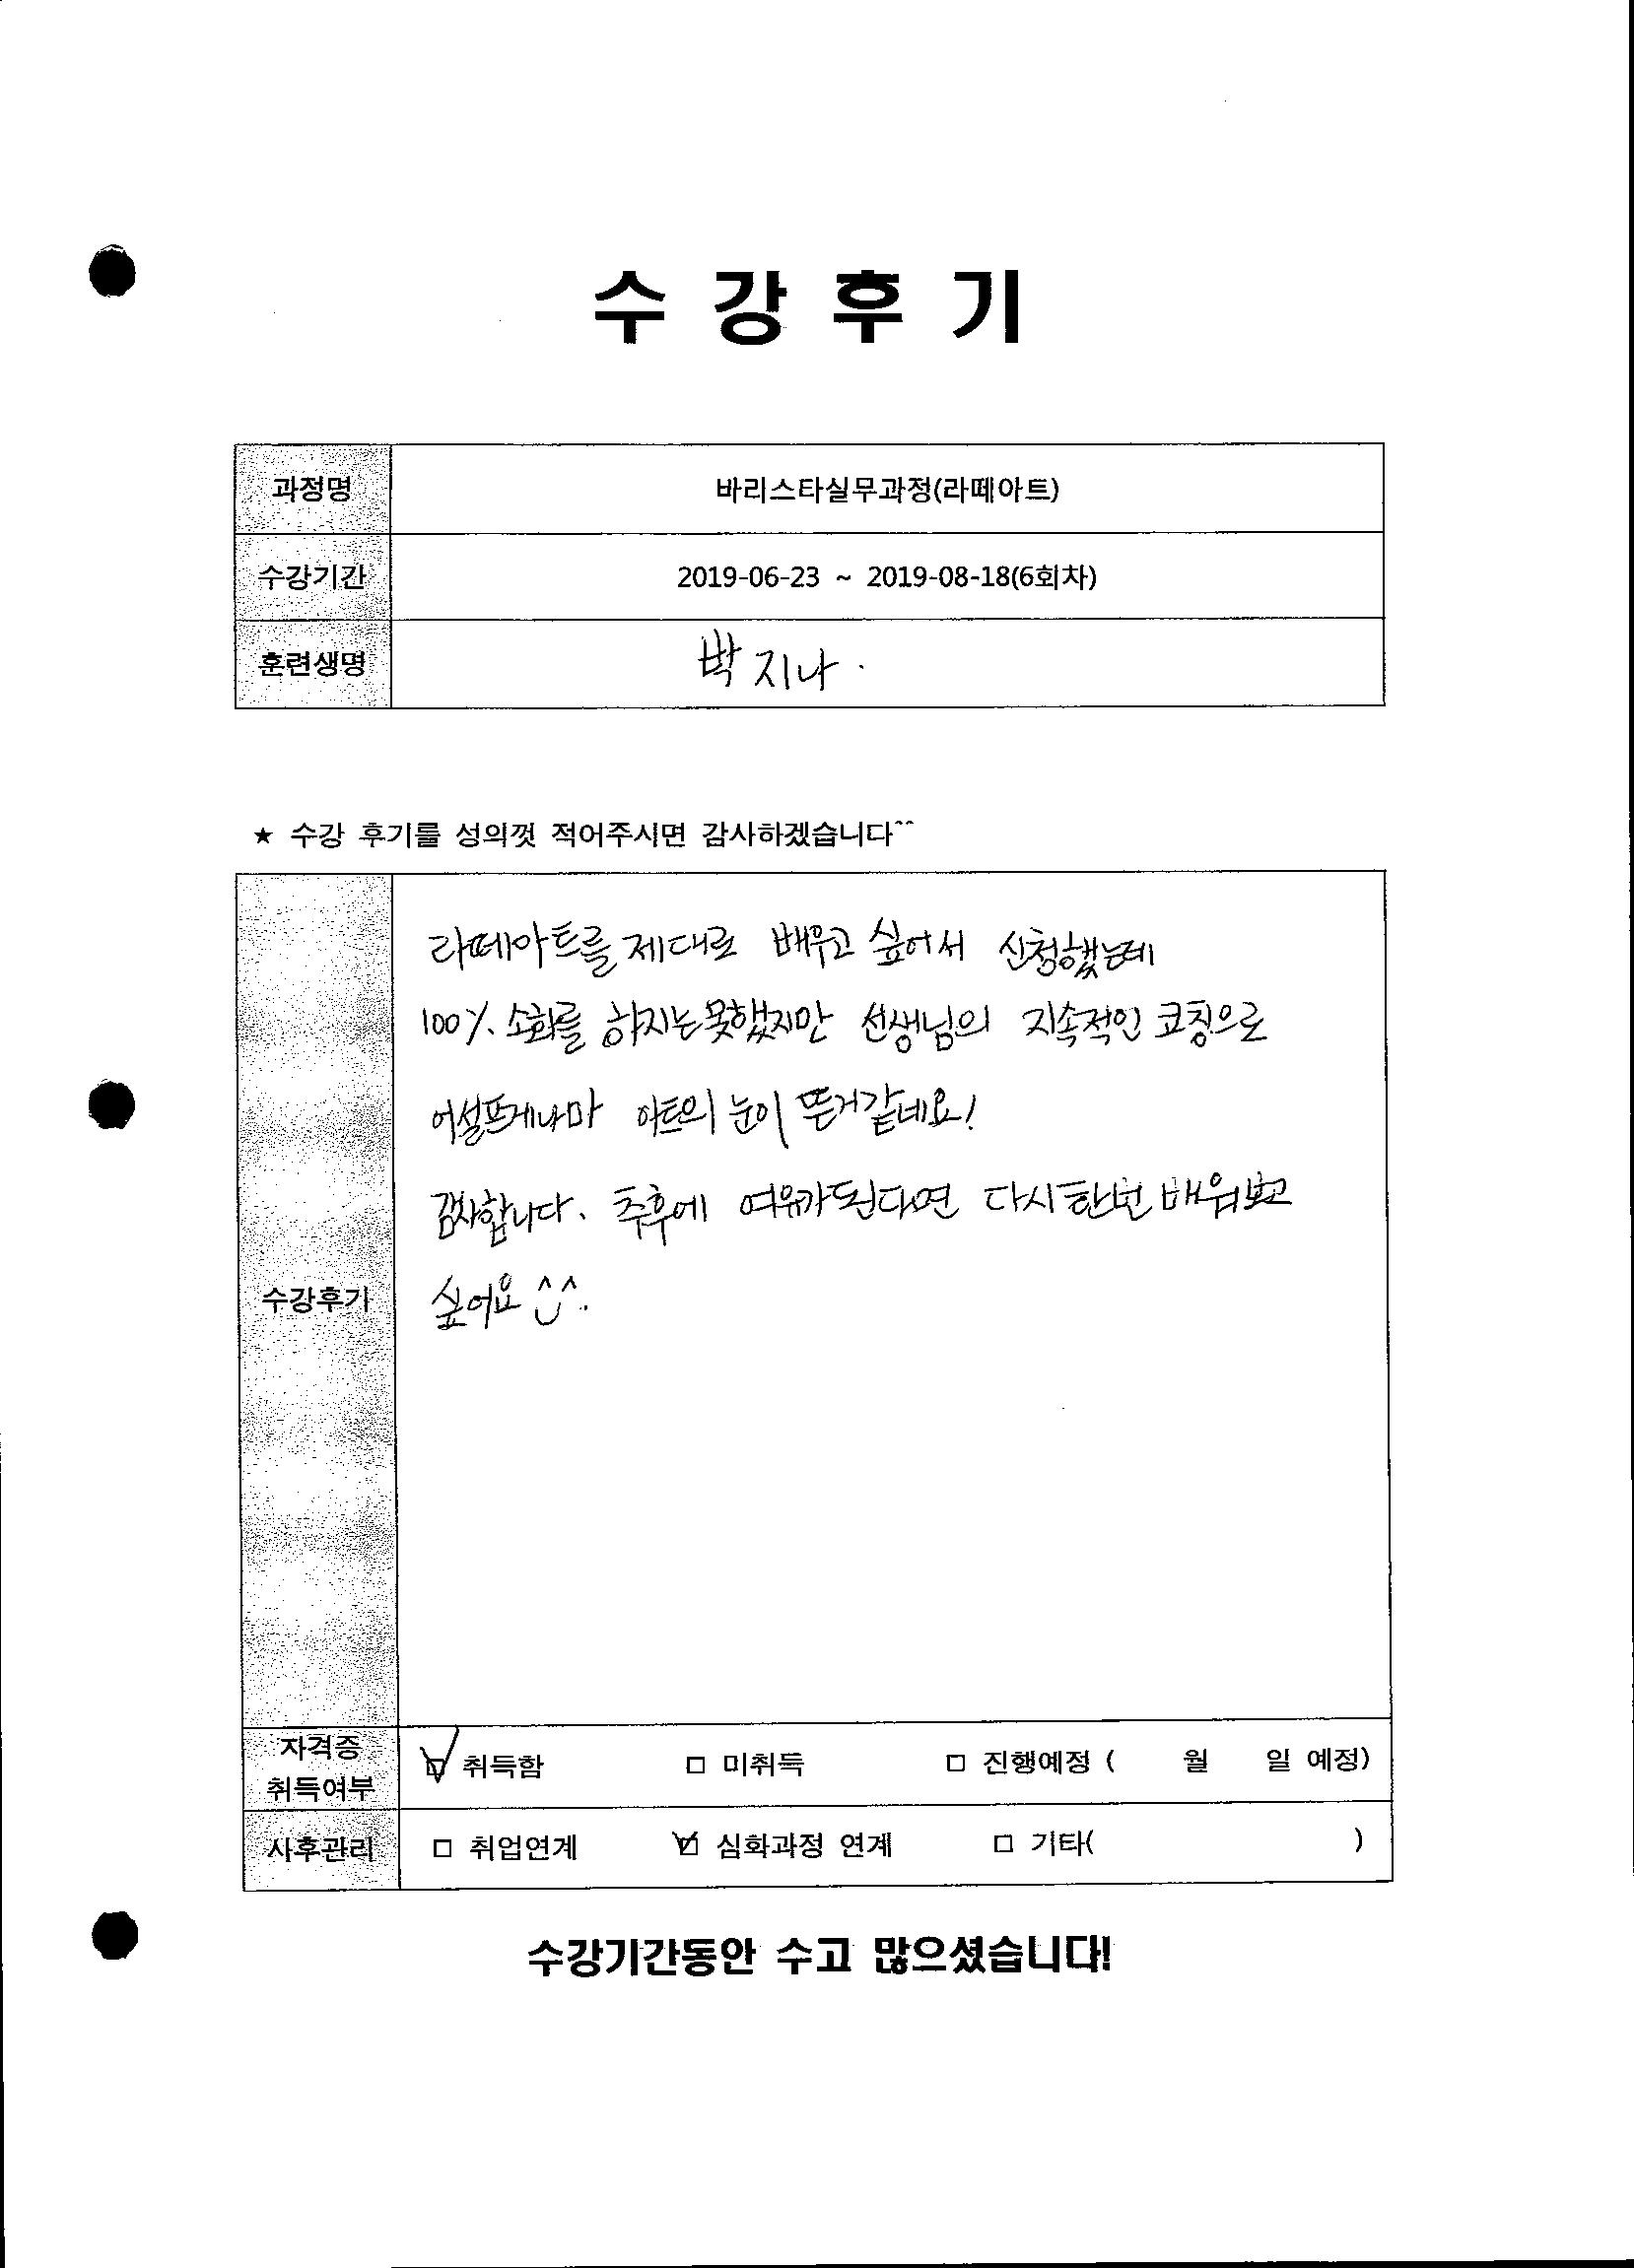 수 강 후 기
과정명 바리스타실무과정(라떼아트)
수강기간 2019-06-23 ~ 2019-08-18(6회차)
훈련생명 박지나.
★ 수강 후기를 성의껏 적어주시면 감사하겠습니다^^
라떼아트를 제대로 배우고 싶어서 신청했는데
100% 소화를 하지는못했지만 선생님의 지속적인 코칭으로
어설프게나마 아트의 눈이 뜬거같네요!
감사합니다. 추후에 여유가된다면 다시한번 배워보고
수강후기 싶어요 ^^.
자격증
취득여부 ☑ 취득함 □ 미취득 □ 진행예정 ( 월 일 예정)
사후관리 □ 취업연계 ☑ 심화과정 연계 □ 기타( )
수강기간동안 수고 많으셨습니다!